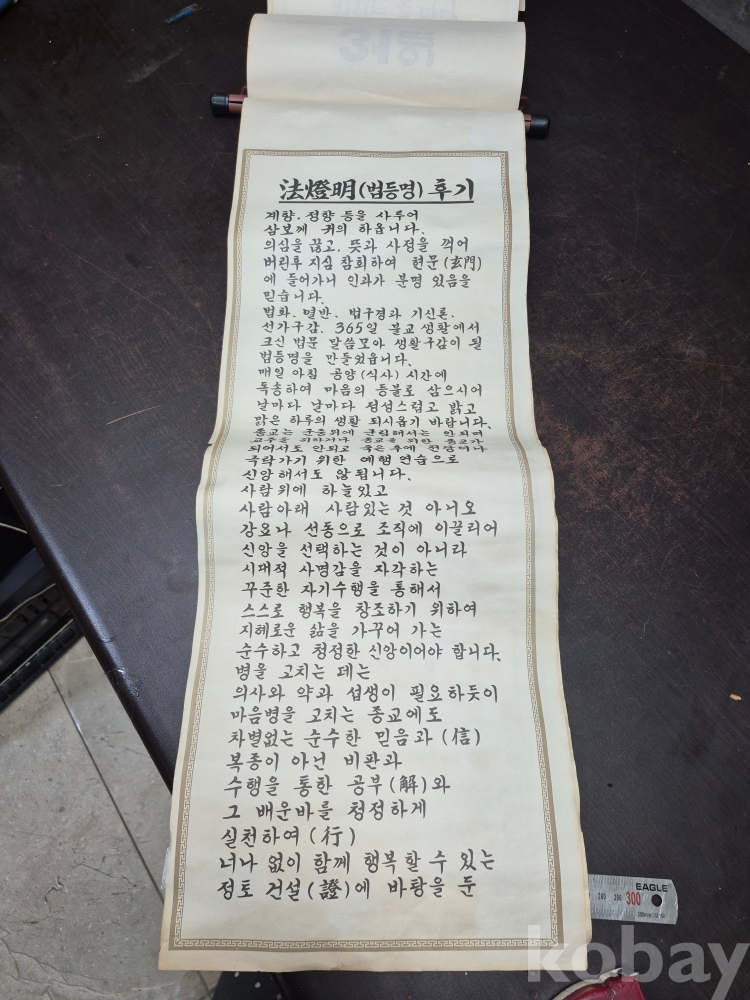 法燈明(법등명) 후기
계향, 정향 등을 사루어
삼보께 귀의 하옵니다.
의심을 끊고, 뜻과 사정을 꺽어
버린후 지심 참회하여 현문(玄門)
에 들어가니 인과가 분명 있음을
믿습니다.
법화, 열반, 법구경과 기신론,
선가구감, 365일 불교 생활에서
크신 법문 말씀모아 생활구감이 될
법등명을 만들었읍니다.
매일 아침 공양(식사) 시간에
독송하여 마음의 등불로 삼으시어
날마다 날마다 정성스럽고 밝고
맑은 하루의 생활 되시옵기 바랍니다.
종교는 군중위에 군림해서는 안되며
교주를 위하거나 종교를 위한 종교가
되어서도 안되고 죽은후에 천당이나
극락가기 위한 예행연습으로
신앙해서도 않됩니다.
사람위에 하늘있고
사람아래 사람있는 것 아니오
강요나 선동으로 조직에 이끌리어
신앙을 선택하는 것이 아니라
시대적 사명감을 자각하는
꾸준한 자기수행을 통해서
스스로 행복을 창조하기 위하여
지혜로운 삶을 가꾸어 가는
순수하고 청정한 신앙이어야 합니다.
병을 고치는 데는
의사와 약과 섭생이 필요하듯이
마음병을 고치는 종교에도
차별없는 순수한 믿음과 (信)
복종이 아닌 비판과
수행을 통한 공부(解)와
그 배운바를 청정하게
실천하여(行)
너나 없이 함께 행복할 수 있는
정토 건설(證)에 바탕을 둔
EAGLE
280 290 300
kobay